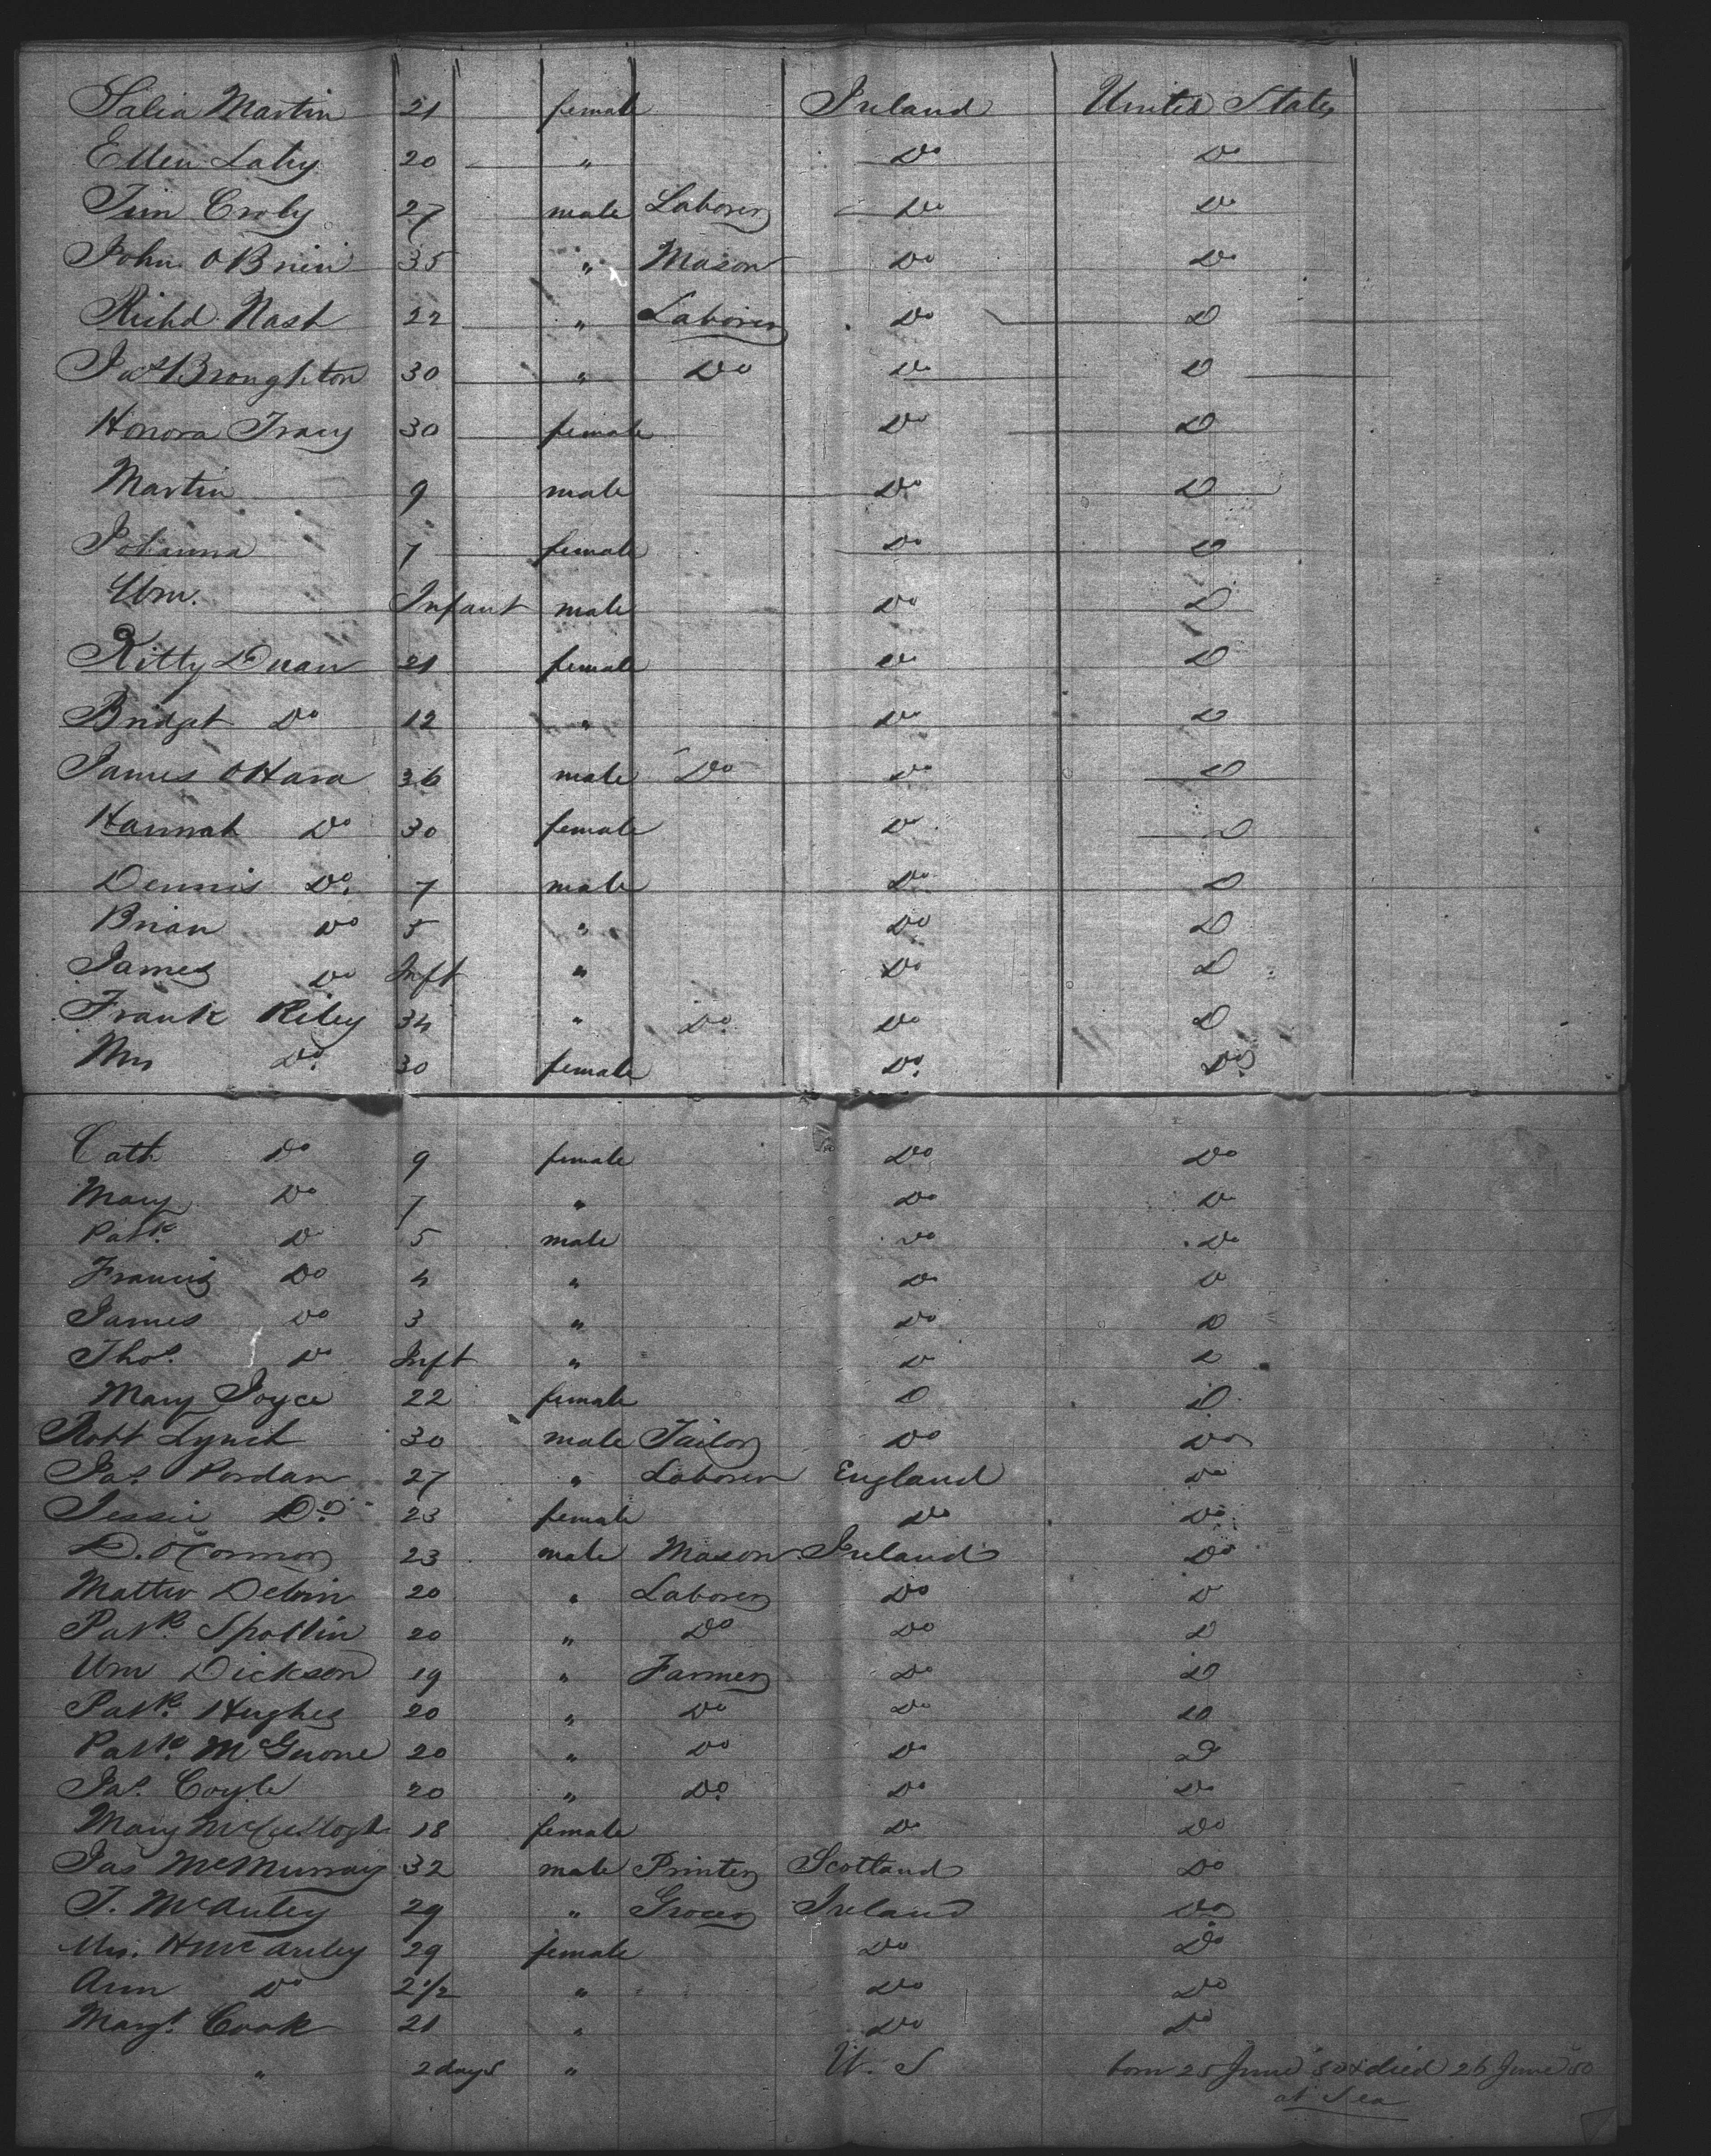 Salia Martin 21 female Ireland United States
Ellen Lahy 20 " Do Do
Tim Croly 27 male Laborer Do Do
John OBrien 35 " Mason Do Do
Richd Nash 22 " Laborer Do D
Jas Broughton 30 " Do Do D
Honora Tracy 30 female Do D
Martin 9 male Do D
Johanna 7 female Do D
Wm. Infant male Do D
Kitty Duan 21 female Do D
Bridget Do 12 " Do D
James OHara 36 male Do Do D
Hannah Do 30 female Do D
Dennis Do. 7 male Do D
Brian Do 5 " Do D
James Do Inft " Do D
Frank Riley 34 " Do Do D
Mrs Do. 30 female Do. Do.
Cath Do 9 female Do Do
Mary Do 7 " Do Do
Patk. Do 5 male Do Do
Francis Do 4 " Do D
James Do 3 " Do D
Thos. Do Inft " D D
Mary Joyce 22 female D D
Robt Lynch 30 male Tailor Do Do
Jas. Jordan 27 " Laborer England Do
Jessie Do. 23 female Do Do
D. OConnor 23 male Mason Ireland Do
Mattw Delvin 20 " Laborer Do D
Patk. Spollin 20 " Do Do D
Wm Dickson 19 " Farmer Do D
Patk. Hughes 20 " Do Do D
Patk. McGuone 20 " Do Do D
Jas. Coyle 20 " Do. Do Do
Mary McCullogh 18 female Do Do
Jas McMurray 32 male Printer Scotland Do
T. McAuley 29 " Grocer Ireland Do
Mrs. McAuley 29 female Do Do
Ann Do 2 1/2 " Do Do
Margt. Cook 21 " Do Do
" 2 days " U. S born 25 June 50 & died 26 June 50
at Sea